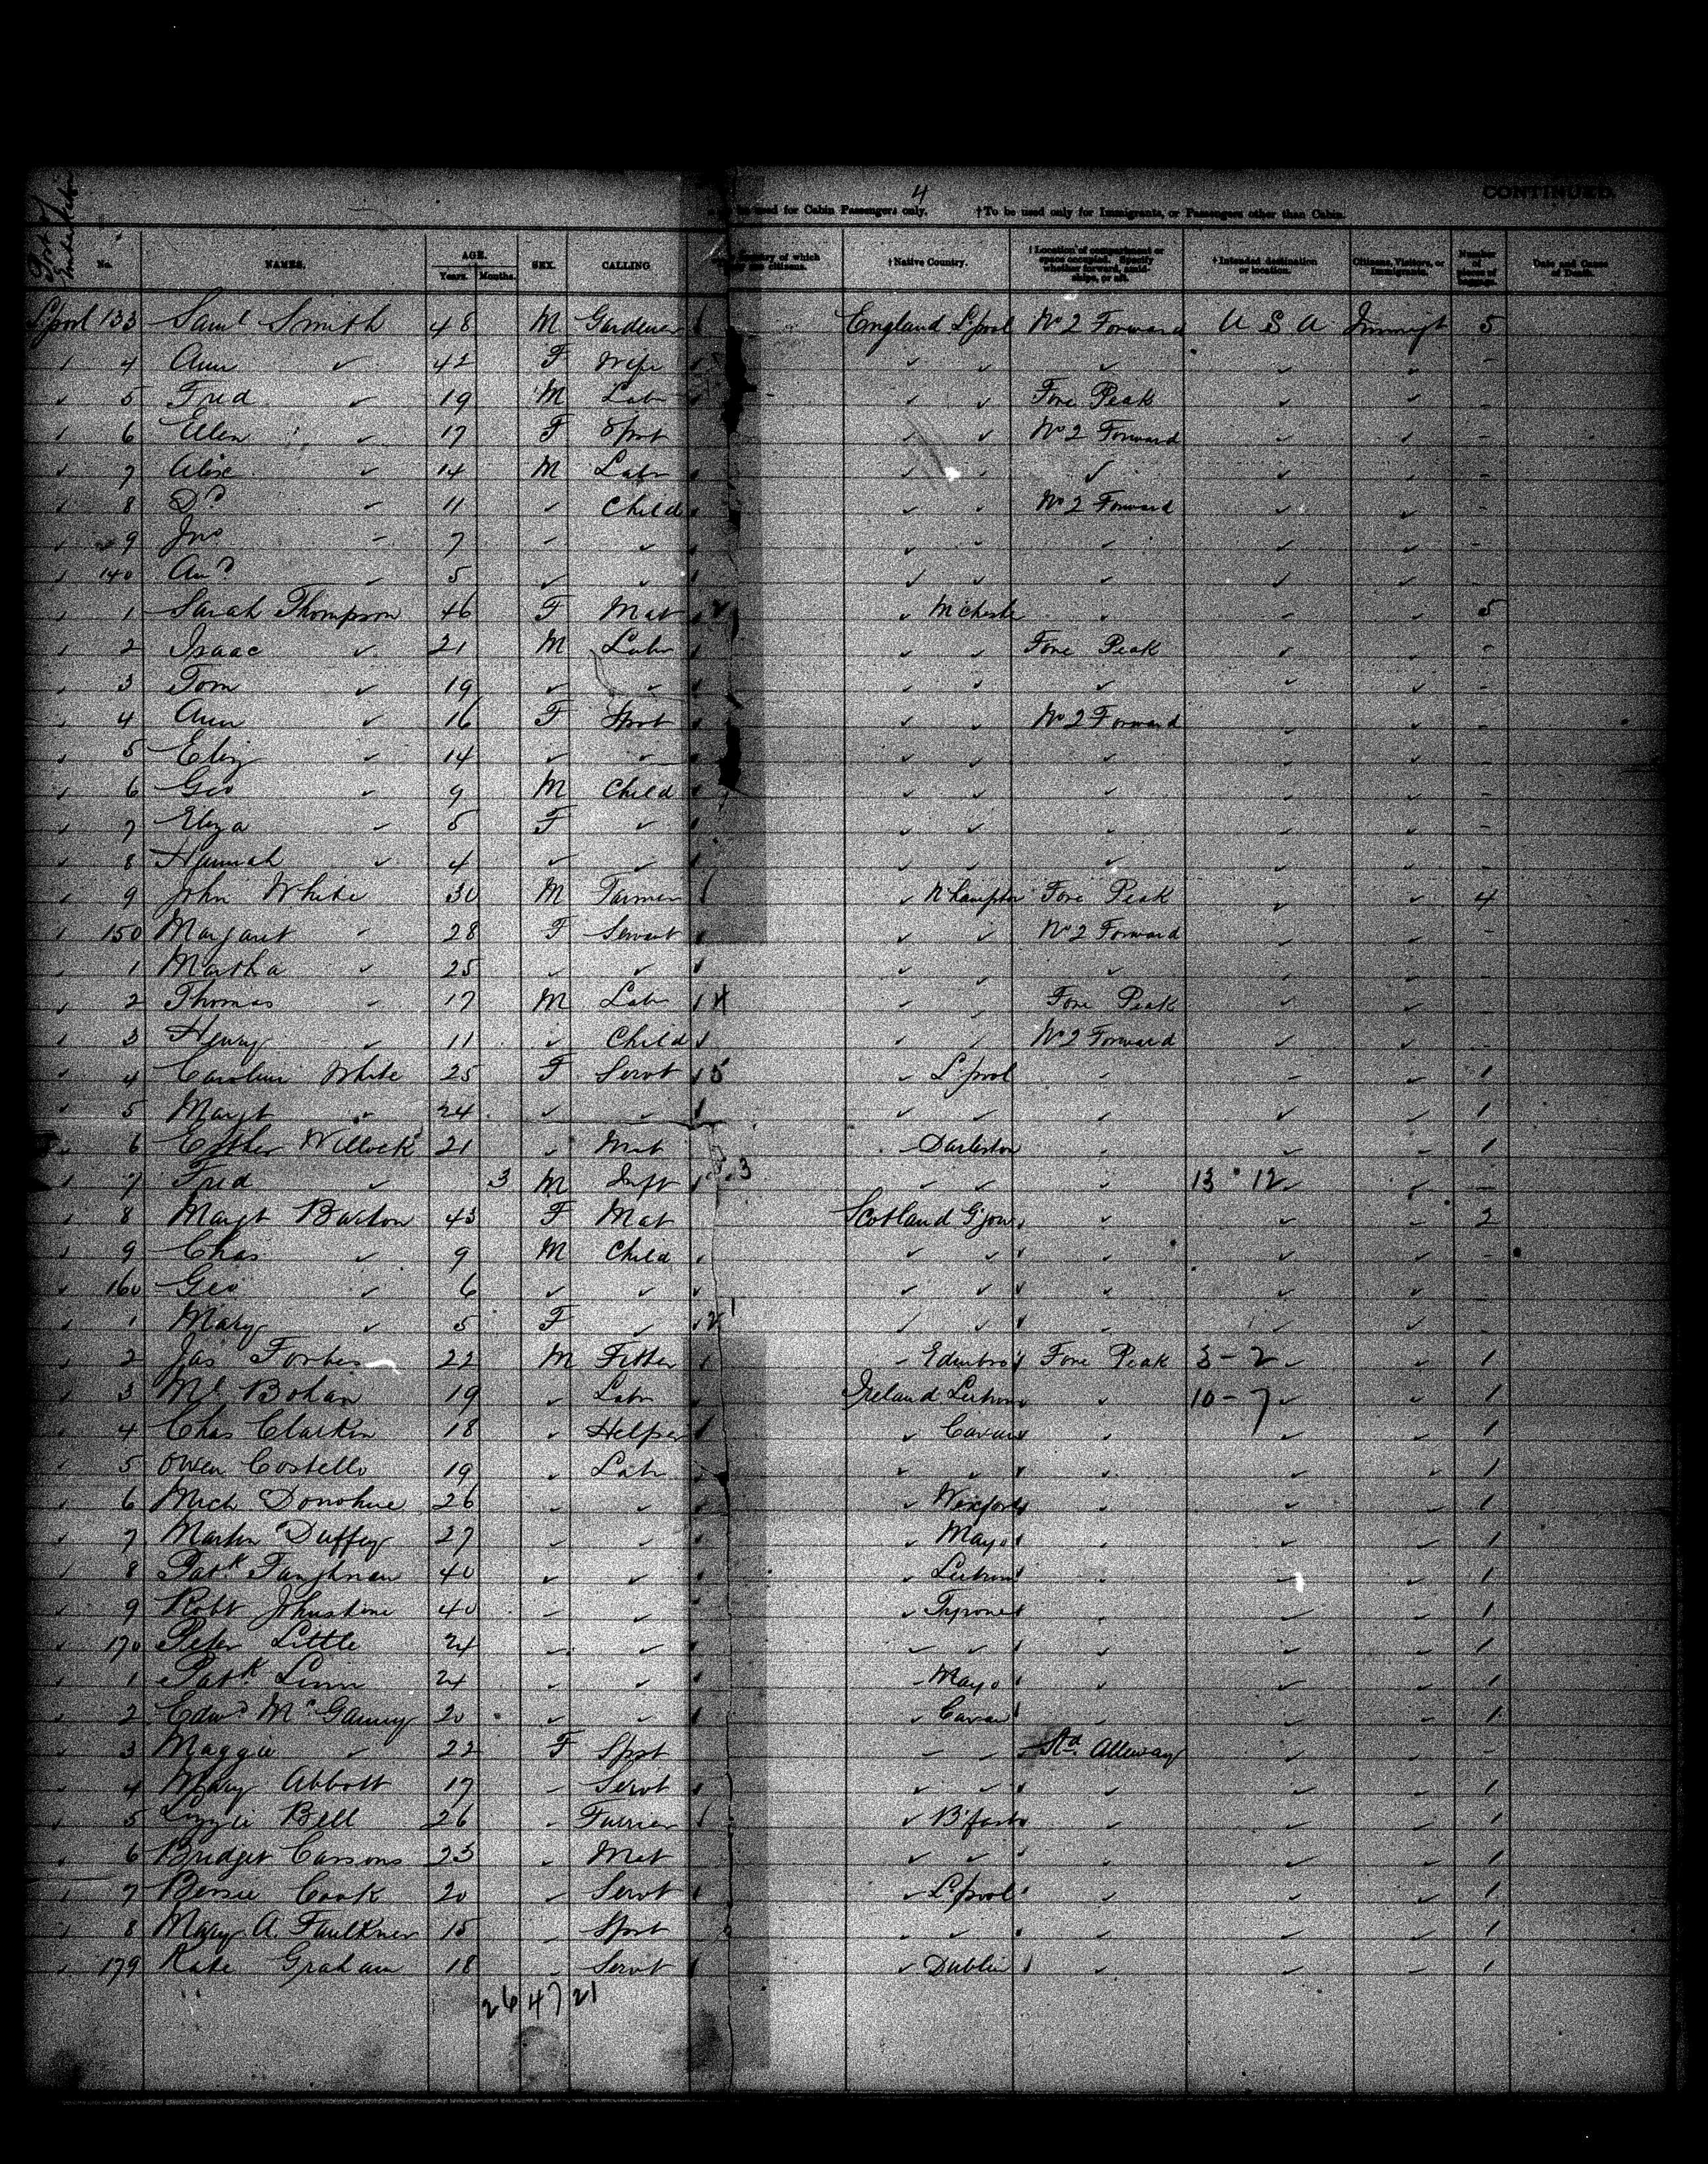 4
CONTINUED.
used for Cabin Passengers only. †To be used only for Immigrants, or Passengers other than Cabin.
Port of Embarkation No. NAMES. AGE. Years. Months. SEX. CALLING Country of which citizens. †Native Country. †Location of compartment or space occupied. Specify whether forward, amidships, or aft. †Intended destination or location. Citizens, Visitors, or Immigrants. Number of pieces of baggage. Date and Cause of Death.
L'pool 133 Saml Smith 48 M Gardener England L'pool No 2 Forward U S A Immigt 5
4 Ann ✓ 42 F Wife ✓ ✓ ✓ ✓ ✓ -
5 Fred ✓ 19 M Labr ✓ ✓ Fore Peak ✓ ✓ -
6 Ellen ✓ 17 F Spst ✓ ✓ No 2 Forward ✓ ✓ -
7 ✓ 14 M Labr ✓ ✓ ✓ ✓ ✓ -
8 Do ✓ 11 ✓ Child ✓ ✓ No 2 Forward ✓ ✓ -
9 Jno ✓ 7 ✓ ✓ ✓ ✓ ✓ ✓ ✓ -
140 ✓ 5 ✓ ✓ ✓ ✓ ✓ ✓ ✓ -
1 Sarah Thompson 46 F Mat ✓ Mchester ✓ ✓ ✓ 5
2 Isaac ✓ 21 M Labr ✓ ✓ Fore Peak ✓ ✓ -
3 Tom ✓ 19 ✓ ✓ ✓ ✓ ✓ ✓ ✓ -
4 Ann ✓ 16 F Spst ✓ ✓ No 2 Forward ✓ ✓ -
5 Eliz ✓ 14 ✓ ✓ ✓ ✓ ✓ ✓ ✓ -
6 Geo ✓ 9 M Child ✓ ✓ ✓ ✓ ✓ -
7 Eliza ✓ 5 F ✓ ✓ ✓ ✓ ✓ ✓ -
8 Hannah ✓ 4 ✓ ✓ ✓ ✓ ✓ ✓ ✓ -
9 John White 30 M Farmer ✓ N'hampton Fore Peak ✓ ✓ 4
150 Margaret ✓ 28 F Servant ✓ ✓ No 2 Forward ✓ ✓ -
1 Martha ✓ 25 ✓ ✓ ✓ ✓ ✓ ✓ -
2 Thomas ✓ 17 M Labr 4 ✓ ✓ Fore Peak ✓ ✓ -
3 Henry ✓ 11 ✓ Child ✓ ✓ No 2 Forward ✓ ✓ -
4 Caroline White 25 F Servt 5 ✓ L'pool ✓ ✓ ✓ 1
5 Margt ✓ 24 ✓ ✓ ✓ ✓ ✓ ✓ ✓ 1
6 Esther Willock 21 ✓ Mat ✓ Darleston ✓ ✓ ✓ 1
7 Fred ✓ 3 M Inft 3 ✓ ✓ ✓ 13 " 12 ✓ ✓ -
8 Margt Barton 43 F Mat Scotland G'gow ✓ ✓ ✓ 2
9 Chas ✓ 9 M Child ✓ ✓ ✓ ✓ ✓ -
160 Geo ✓ 6 ✓ ✓ ✓ ✓ ✓ ✓ ✓ -
1 Mary ✓ 5 F ✓ ✓ ✓ ✓ ✓ ✓ -
2 Jas Forbes 22 M Fitter ✓ Edinbro Fore Peak 3 - 2 ✓ ✓ 1
3 Ml Bohan 19 ✓ Labr Ireland Leitrim ✓ 10 - 7 ✓ ✓ 1
4 Chas Clarkin 18 ✓ Helper ✓ Cavan ✓ ✓ ✓ 1
5 Owen Costello 19 ✓ Labr ✓ ✓ ✓ ✓ ✓ 1
6 Mich Donohue 26 ✓ ✓ ✓ Wexford ✓ ✓ ✓ 1
7 Martin Duffey 27 ✓ ✓ ✓ Mayo ✓ ✓ ✓ 1
8 Patk Faughnan 40 ✓ ✓ ✓ Leitrim ✓ ✓ ✓ 1
9 Robt Johnstone 40 ✓ ✓ ✓ Tyrone ✓ ✓ ✓ 1
170 Peter Little 24 ✓ ✓ ✓ ✓ ✓ ✓ ✓ 1
1 Patk Linn 24 ✓ ✓ ✓ Mayo ✓ ✓ ✓ 1
2 Edwd McGauvy 20 ✓ ✓ ✓ Cavan ✓ ✓ ✓ 1
3 Maggie ✓ 22 F Spst ✓ ✓ Std. Alleway ✓ ✓ -
4 Mary Abbott 17 ✓ Servt ✓ ✓ ✓ ✓ ✓ 1
5 Lizzie Bell 26 ✓ Furrier ✓ B'fast ✓ ✓ ✓ 1
6 Bridget Carsons 23 ✓ Mat ✓ ✓ ✓ ✓ ✓ 1
7 Bessie Cook 20 ✓ Servt ✓ L'pool ✓ ✓ ✓ 1
8 Mary A. Faulkner 15 ✓ Spst ✓ ✓ ✓ ✓ ✓ 1
179 Kate Graham 18 ✓ Servt ✓ Dublin ✓ ✓ ✓ 1
26 47 21